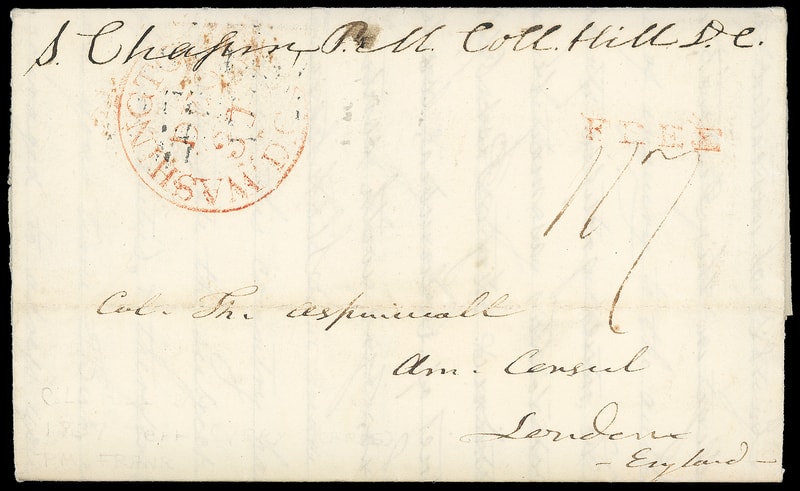 S. Chapin, P. M. Coll. Hill D. C.
WASHINGTON D.C.
DEC
FREE
Col. Th. Aspinwall
Am. Consul
London
- England -